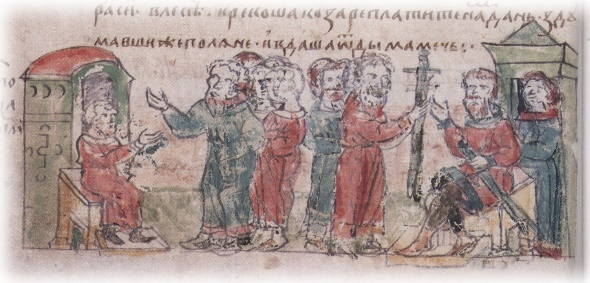 раси· влесѣ· ирекоша козареплатитенадань· здꙋ
мавшижеполѧне· ивдашаѿдымамечь·:·